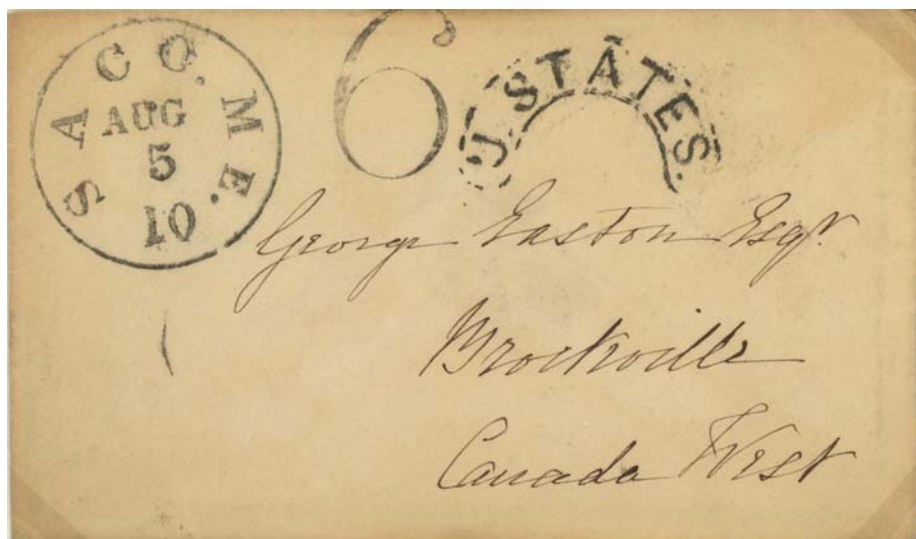 SACO. ME.
AUG
5
10
6
U. STATES.
George Easton Esqr.
Brockville
Canada West